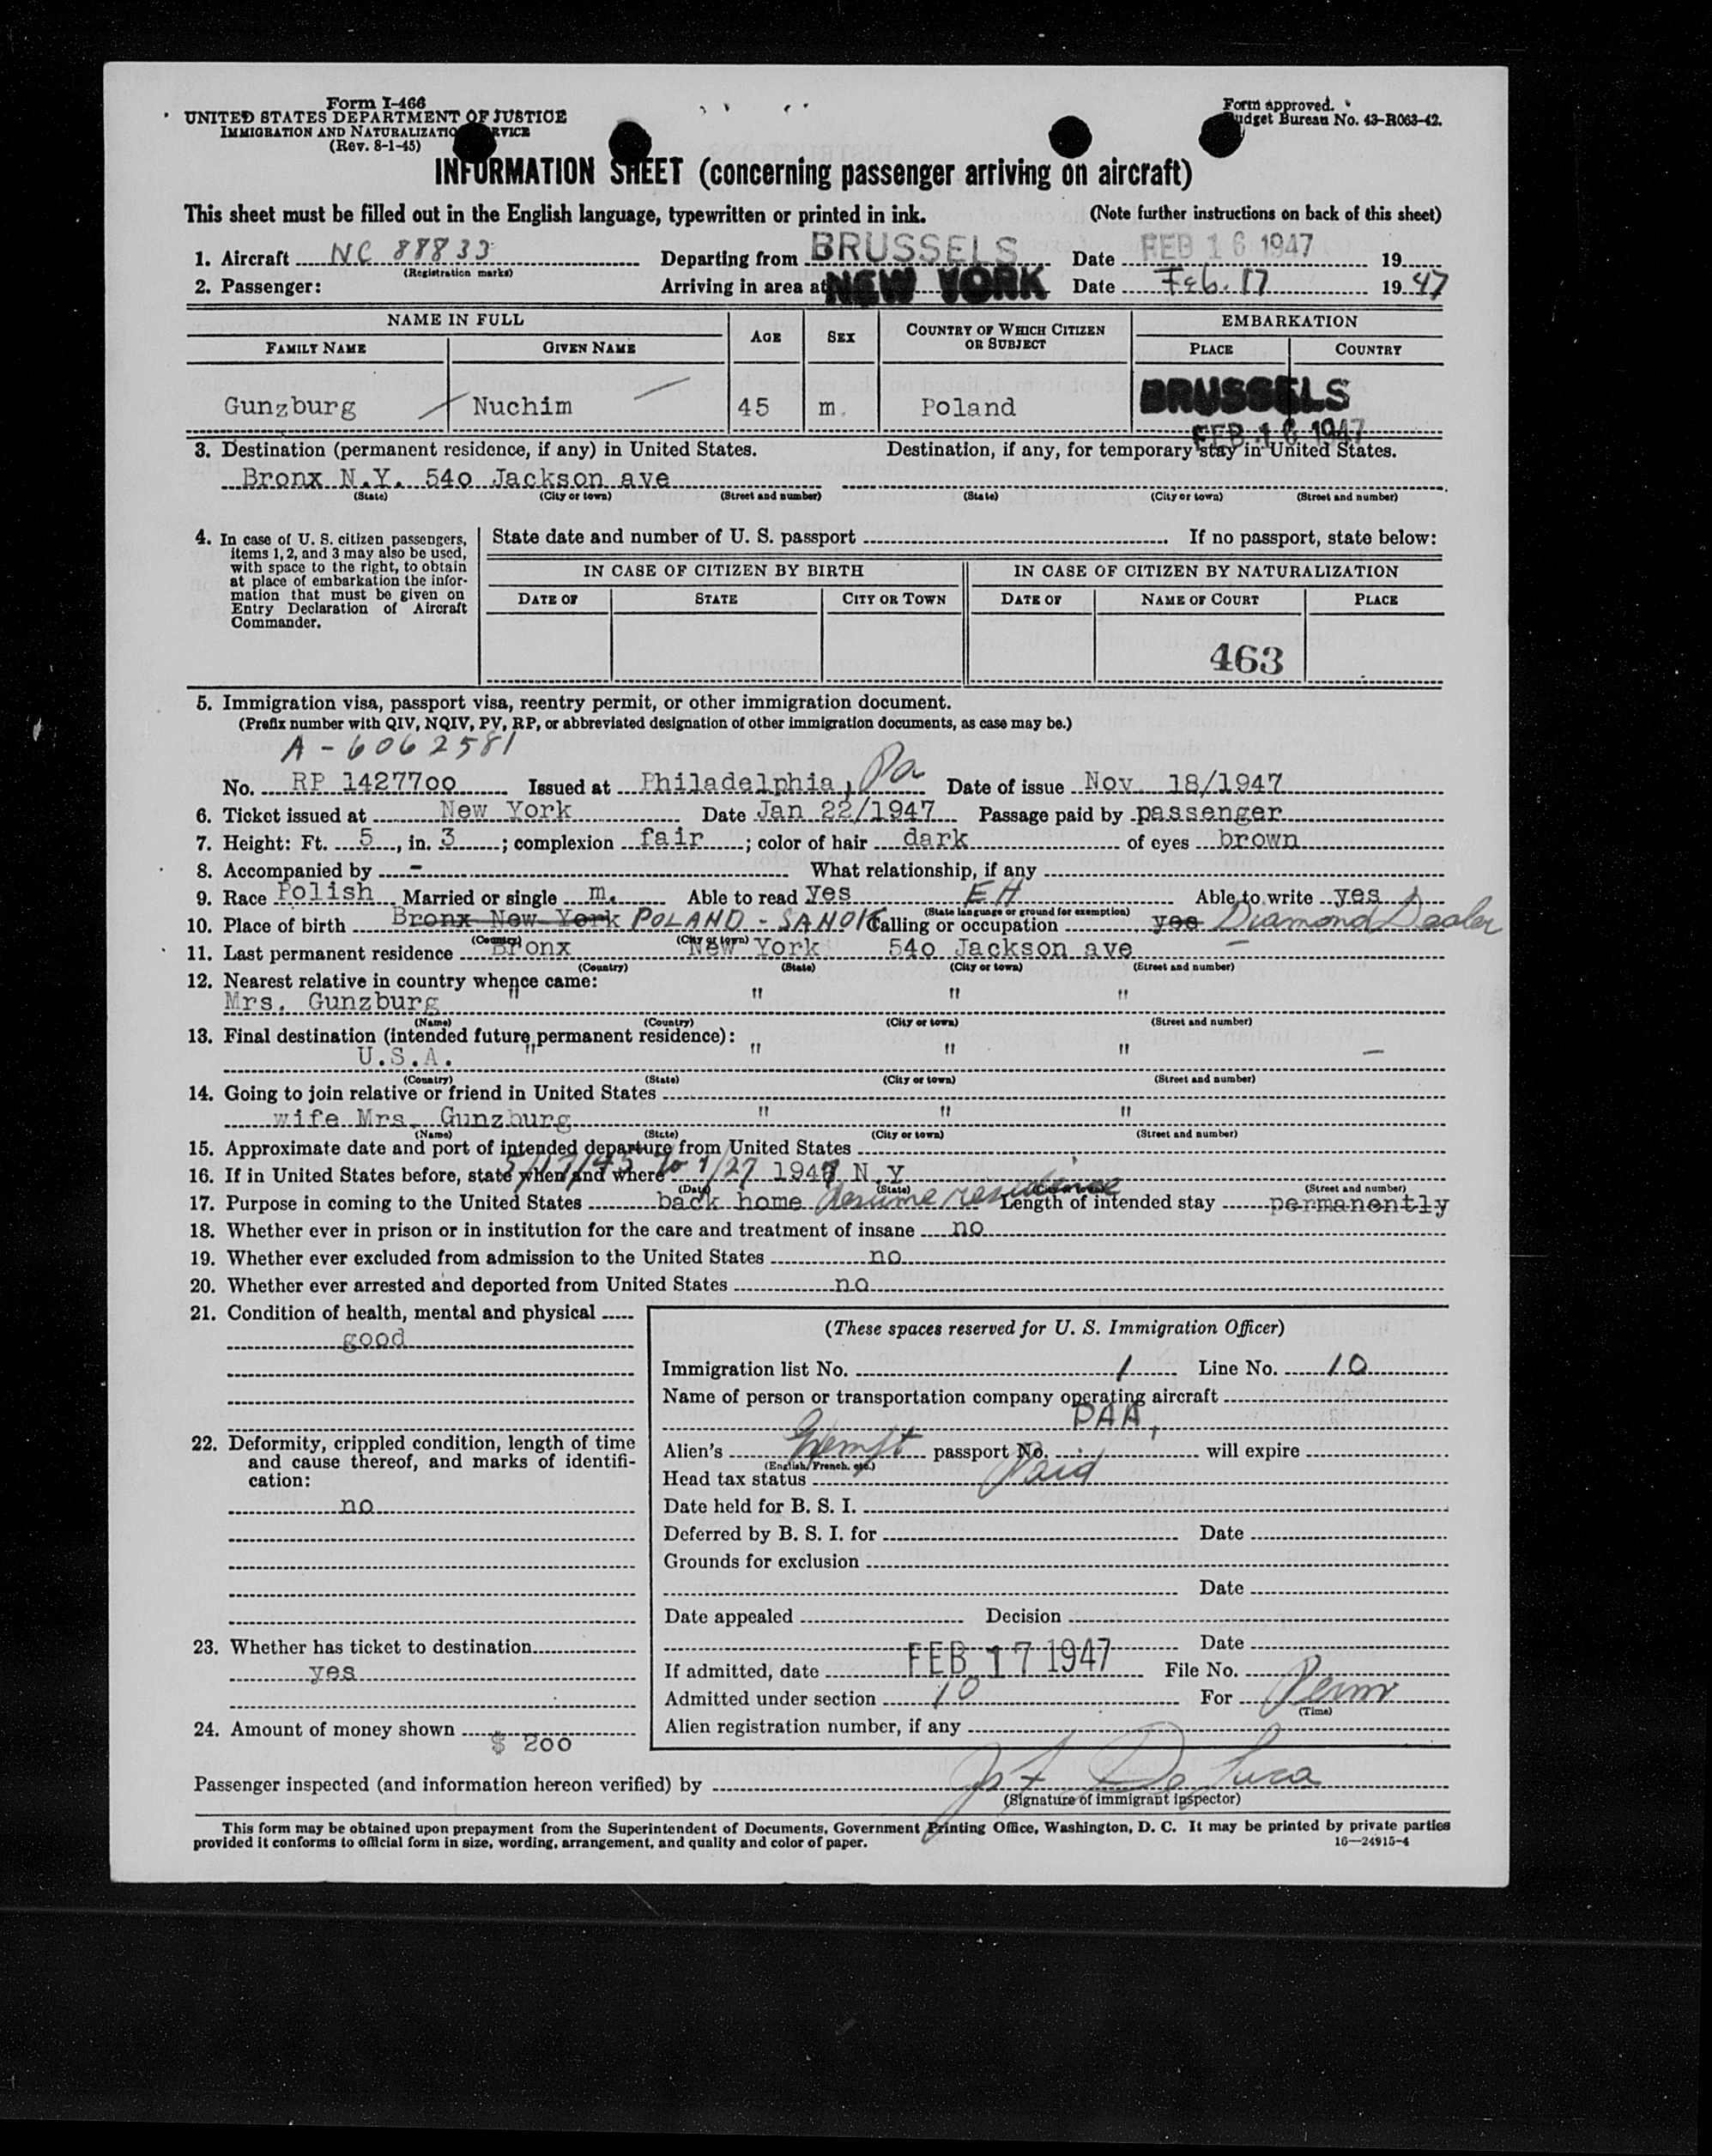 Form I-466
UNITED STATES DEPARTMENT OF JUSTICE
IMMIGRATION AND NATURALIZATIO RVICE
(Rev. 8-1-45)
Form approved.
udget Bureau No. 43-R063-42.
INFORMATION SHEET (concerning passenger arriving on aircraft)
This sheet must be filled out in the English language, typewritten or printed in ink. (Note further instructions on back of this sheet)
1. Aircraft NC 88833 Departing from BRUSSELS Date FEB 16 1947 19
(Registration marks)
2. Passenger: Arriving in area at NEW YORK Date Feb. 17 1947
NAME IN FULL AGE SEX COUNTRY OF WHICH CITIZEN OR SUBJECT EMBARKATION
FAMILY NAME GIVEN NAME PLACE COUNTRY
Gunzburg Nuchim 45 m. Poland BRUSSELS
FEB 16 1947
3. Destination (permanent residence, if any) in United States. Destination, if any, for temporary stay in United States.
Bronx N.Y. 54o Jackson ave
(State) (City or town) (Street and number) (State) (City or town) (Street and number)
4. In case of U. S. citizen passengers, items 1, 2, and 3 may also be used, with space to the right, to obtain at place of embarkation the information that must be given on Entry Declaration of Aircraft Commander.
State date and number of U. S. passport . If no passport, state below:
IN CASE OF CITIZEN BY BIRTH IN CASE OF CITIZEN BY NATURALIZATION
DATE OF STATE CITY OR TOWN DATE OF NAME OF COURT PLACE
463
5. Immigration visa, passport visa, reentry permit, or other immigration document.
(Prefix number with QIV, NQIV, PV, RP, or abbreviated designation of other immigration documents, as case may be.)
A - 6062581
No. RP 14277oo Issued at Philadelphia, Pa Date of issue Nov 18/1947
6. Ticket issued at New York Date Jan 22/1947 Passage paid by passenger
7. Height: Ft. 5, in. 3; complexion fair; color of hair dark of eyes brown
8. Accompanied by - What relationship, if any
9. Race Polish Married or single m. Able to read yes EH Able to write yes
(State language or ground for exemption)
10. Place of birth Bronx New York POLAND - SANOK Calling or occupation yes Diamond Dealer
(Country) (City or town)
11. Last permanent residence Bronx New York 54o Jackson ave
(Country) (State) (City or town) (Street and number)
12. Nearest relative in country whence came:
Mrs. Gunzburg " " " "
(Name) (Country) (City or town) (Street and number)
13. Final destination (intended future permanent residence):
U.S.A. " " " " —
(Country) (State) (City or town) (Street and number)
14. Going to join relative or friend in United States
wife Mrs. Gunzburg " " "
(Name) (State) (City or town) (Street and number)
15. Approximate date and port of intended departure from United States
16. If in United States before, state when and where 5/17/45 to 1/27 1947 N.Y
(Date) (State) (City or town) (Street and number)
17. Purpose in coming to the United States back home Resume residence Length of intended stay permanently
18. Whether ever in prison or in institution for the care and treatment of insane no
19. Whether ever excluded from admission to the United States no
20. Whether ever arrested and deported from United States no
21. Condition of health, mental and physical
good
22. Deformity, crippled condition, length of time and cause thereof, and marks of identification:
no
23. Whether has ticket to destination
yes
24. Amount of money shown $ 2oo
(These spaces reserved for U. S. Immigration Officer)
Immigration list No. 1 Line No. 10
Name of person or transportation company operating aircraft
PAA,
Alien's Exempt passport No. will expire
(English, French, etc.)
Head tax status Paid
Date held for B. S. I.
Deferred by B. S. I. for Date
Grounds for exclusion
Date
Date appealed Decision
Date
If admitted, date FEB 17 1947 File No.
Admitted under section 10 For Perm
(Time)
Alien registration number, if any
Passenger inspected (and information hereon verified) by De Luca
(Signature of immigrant inspector)
This form may be obtained upon prepayment from the Superintendent of Documents, Government Printing Office, Washington, D. C. It may be printed by private parties
provided it conforms to official form in size, wording, arrangement, and quality and color of paper. 16—24915-4